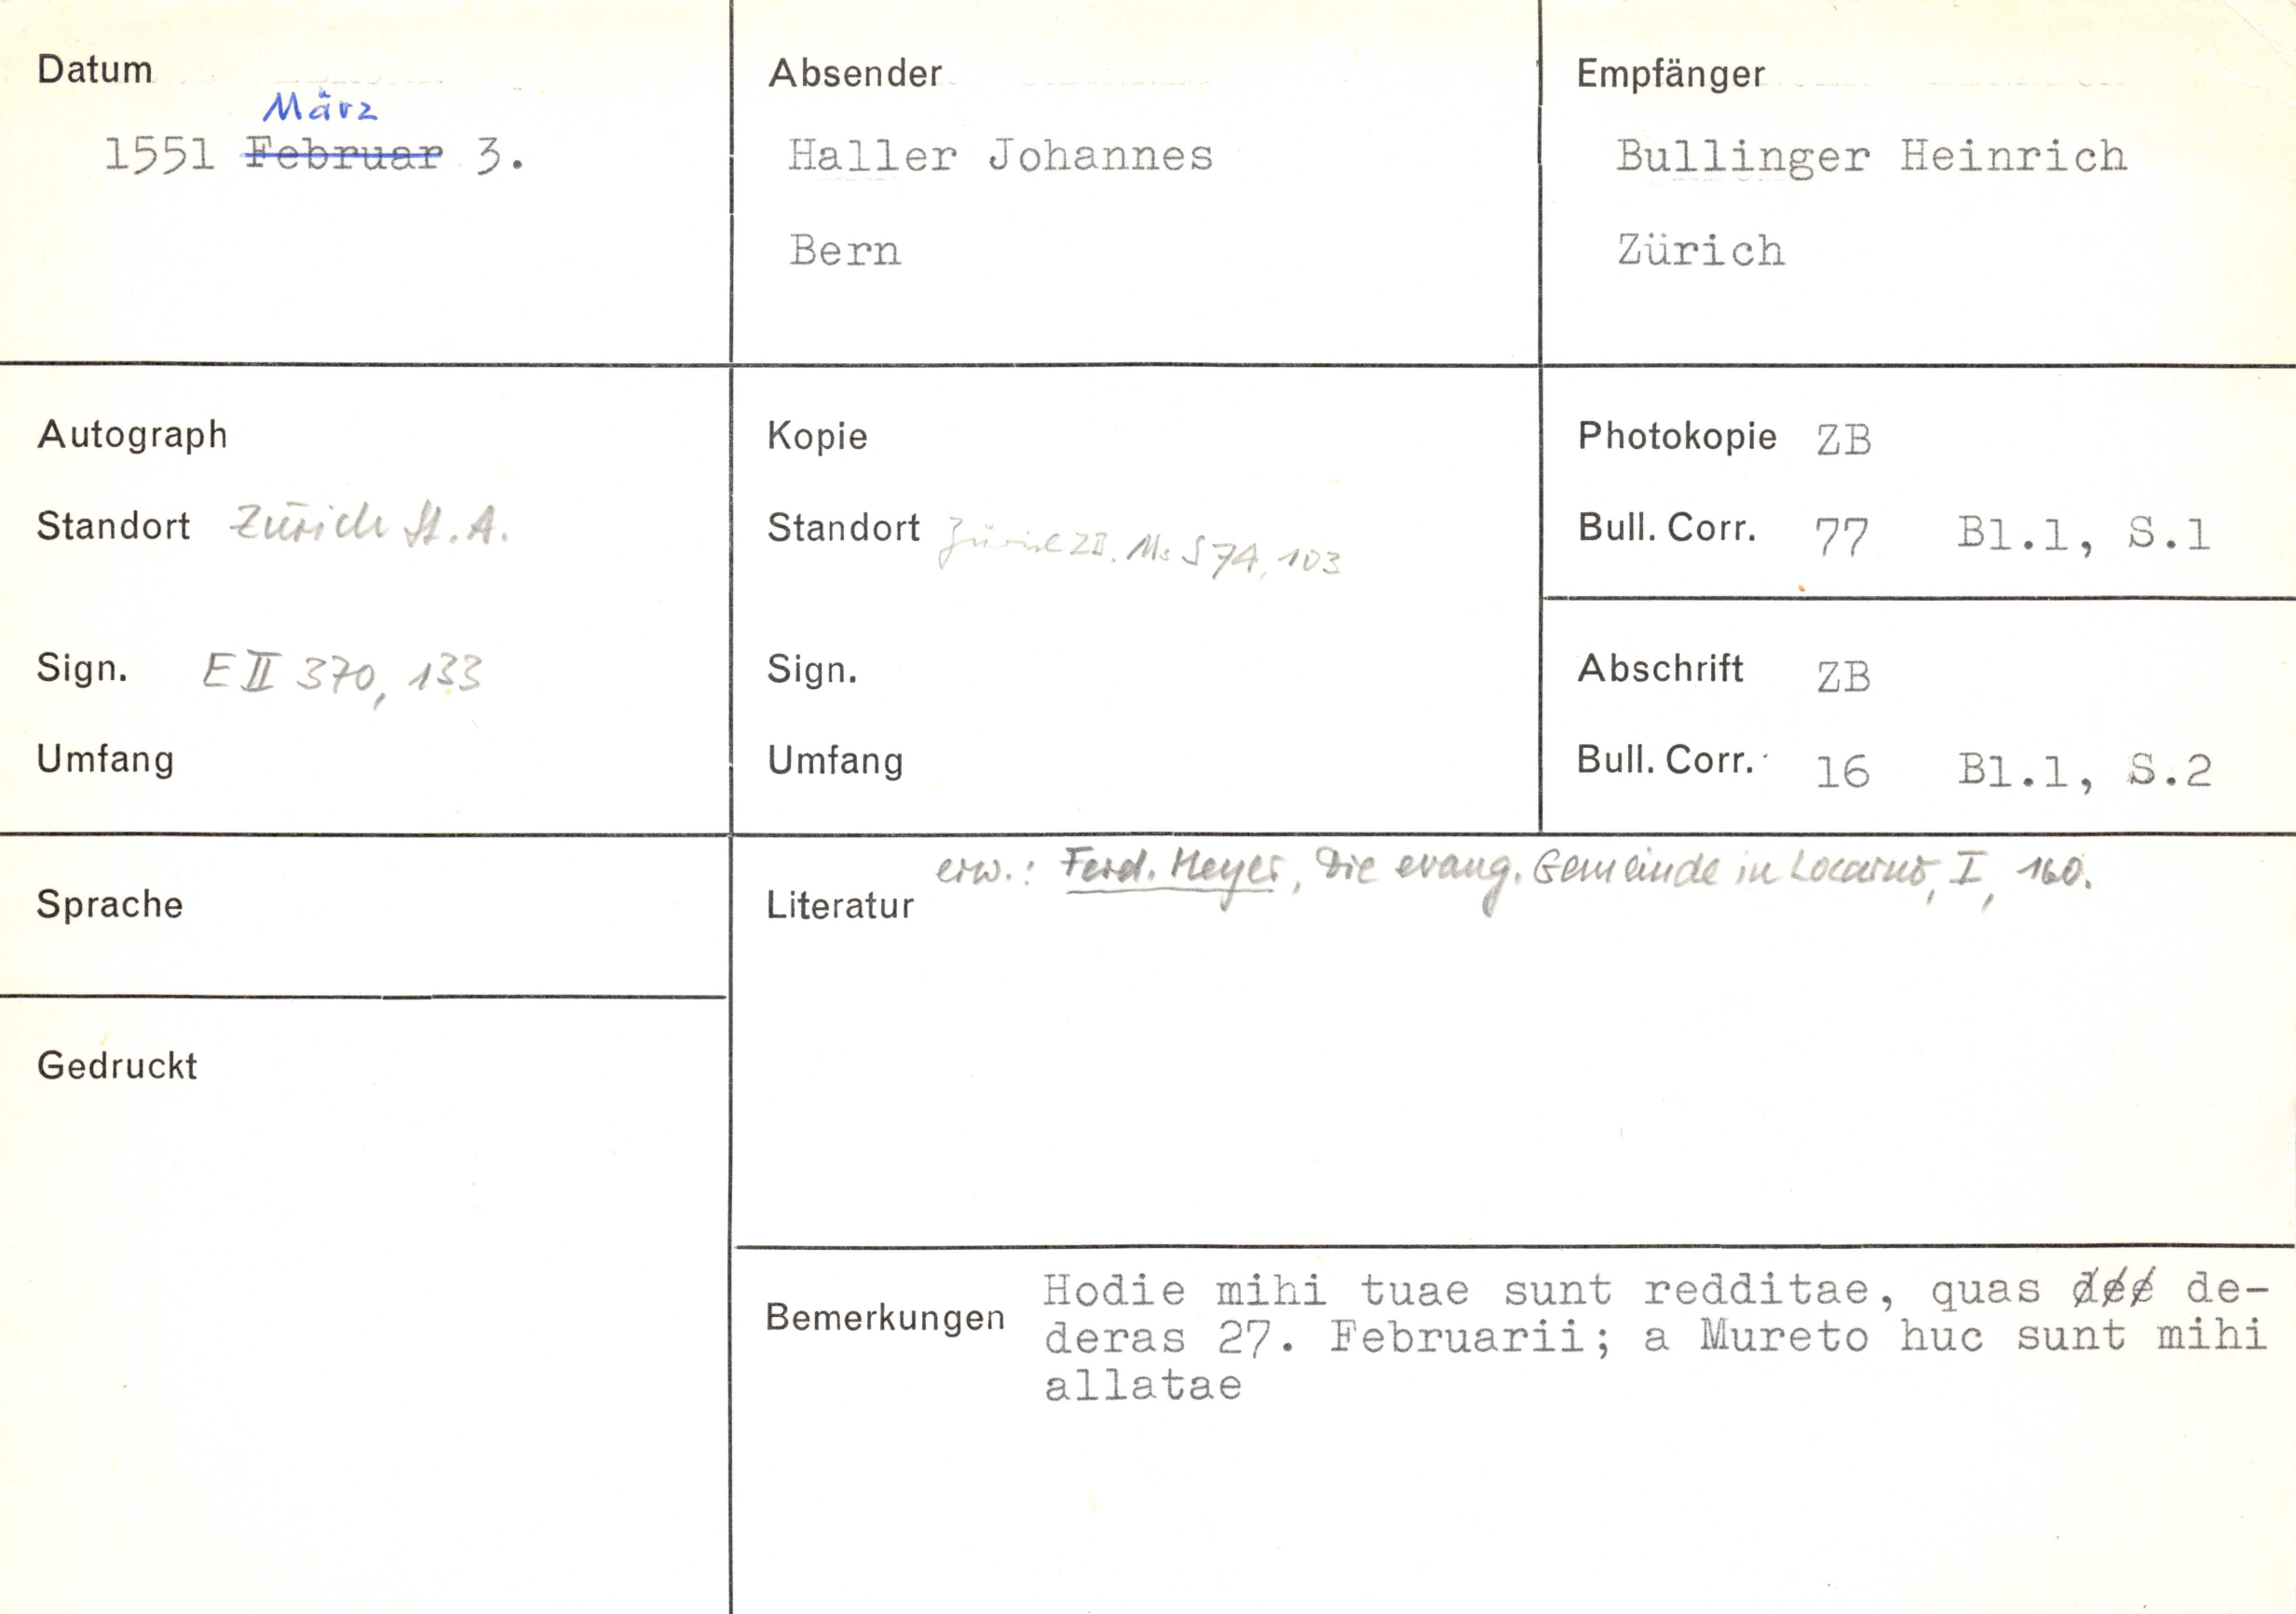 Datum
März
1551 Februar 3.
Absender
Haller Johannes
Bern
Empfänger
Bullinger Heinrich
Zürich
Autograph
Standort Zürich St. A.
Sign. E II 370, 133
Umfang
Kopie
Standort Zürich ZB. Ms S 74, 103
Sign.
Umfang
Photokopie ZB
Bull. Corr. 77 Bl.1, S.1
Abschrift ZB
Bull. Corr. 16 Bl.1, S.2
Sprache
Gedruckt
Literatur erw.: Ferd. Meyer, Die evang. Gemeinde in Locarno, I, 160.
Bemerkungen Hodie mihi tuae sunt redditae, quas de-
deras 27. Februarii; a Mureto huc sunt mihi
allatae